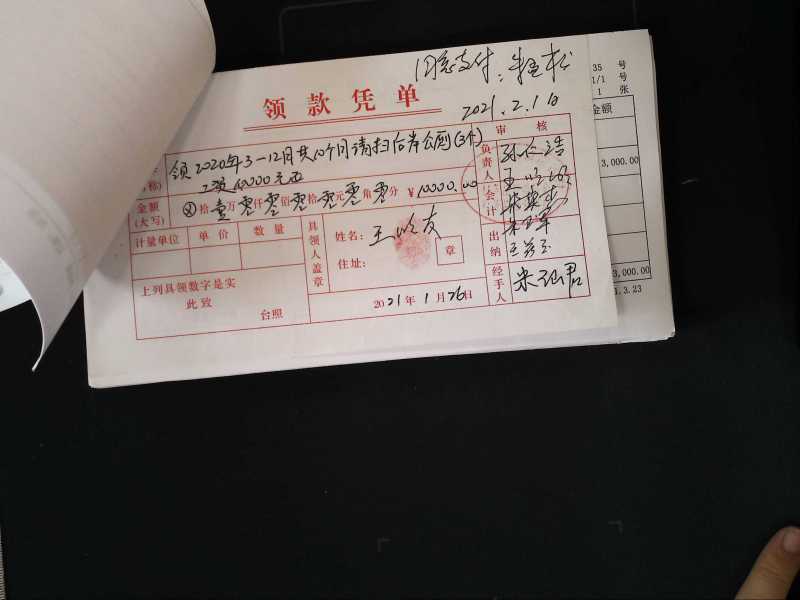 同意支付：
领款凭单
2021.2.1日
领2020年3—12月共10个月请扫后岸公厕(3个)
工资10000元正
审核
负责人
会计
出纳
经手人
金额
(大写)
⊗拾壹万零仟零佰零拾零元零角零分 ¥10000.00
计量单位 单价 数量
具领人盖章
姓名：王岭友
住址：
章
上列具领数字是实
此致
台照
2021年1月26日
35 号
1/1 号
1 张
金额
3,000.00
3,000.00
1.3.23